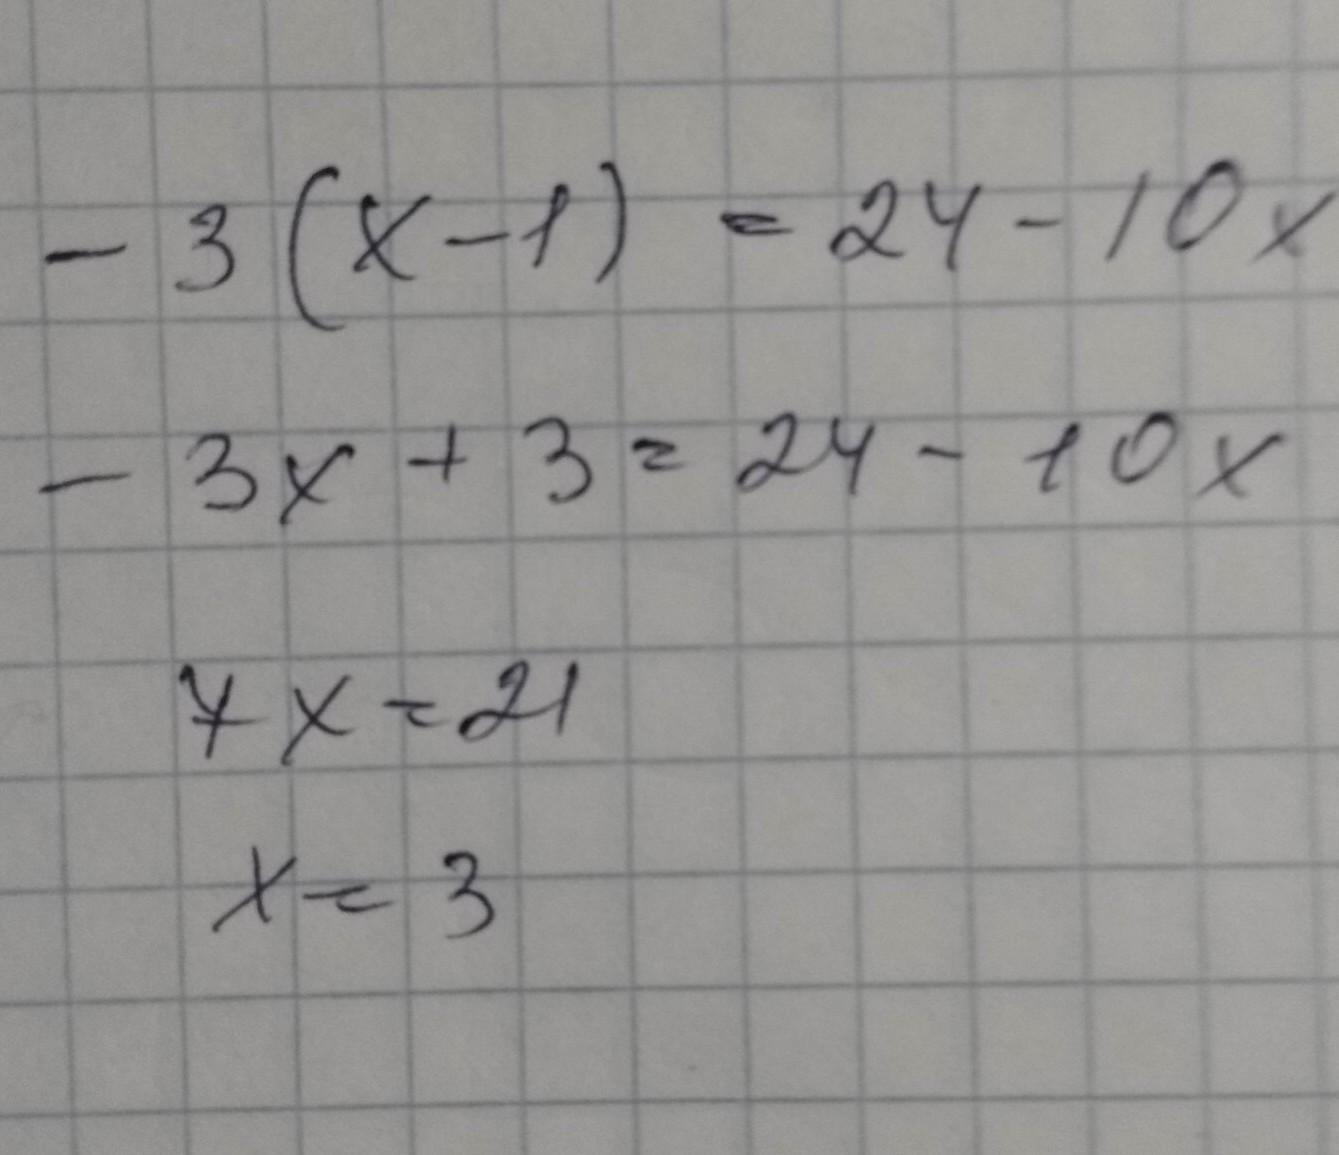 - 3(x-1) = 24 - 10x
- 3x + 3 = 24 - 10x
7x = 21
x = 3